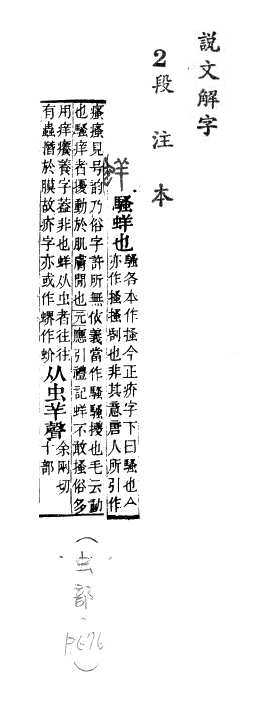 說文解字
2段注本
蛘
騷蛘也
騷各本作搔今正疥字下曰騷也今
亦作搔搔刮也非其意唐人所引作
瘙瘙見号韵乃俗字許所無依義當作騷騷擾也毛云動
也騷痒者擾動於肌膚閒也元應引禮記蛘不敢搔俗多
用痒癢養字葢非也蛘从虫者往往
有蟲潛於膜故疥字亦或作螮作蚧
从虫羊聲
余兩切
十部
(虫部.P676)